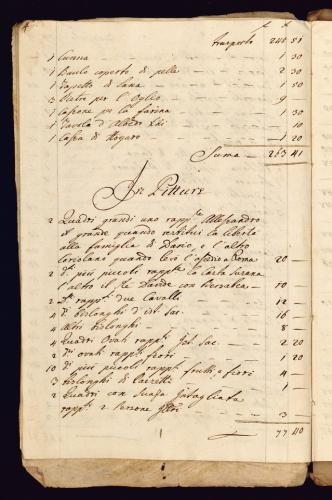 trasporto 248 51
1 Cunna — 1 30
1 Baulo coperto di pelle — 2 30
1 di Lana — 1 50
3 per l'Oglio — 9
1 Cassone per la farina — 1 30
1 Tavola d' — 10
1 Cassa di Nogara — 1 20
Suma — 263 41
In Pitture
2 Quadri grandi uno rapp.te Allessandro
il grande quando restituì la libertà
alla famiglia di Dario, e l'altro
Coriolano quando levò l'assedio a Roma 20 —
2 d.i più piccoli rapp.ti la Casta Susana
l'altro il Re Davide con Bersabea — 10 —
2 d.i rapp.ti due Cavalli — 12 —
4 d.i bislonghi d'ist. sac. — 16 —
4 altri bislonghi — 8 —
4 Quadri Ovati rapp.ti Ist. Sac. — 2 20
2 d.i ovati rapp.ti fiori — 1 20
10 d.i più piccoli rapp.ti frutti, e fiori — 4 —
3 bislonghi di Paesetti — 1 —
2 Quadri con Suaza Intagliata
rapp.ti 2 Persone — 3 —
77 40